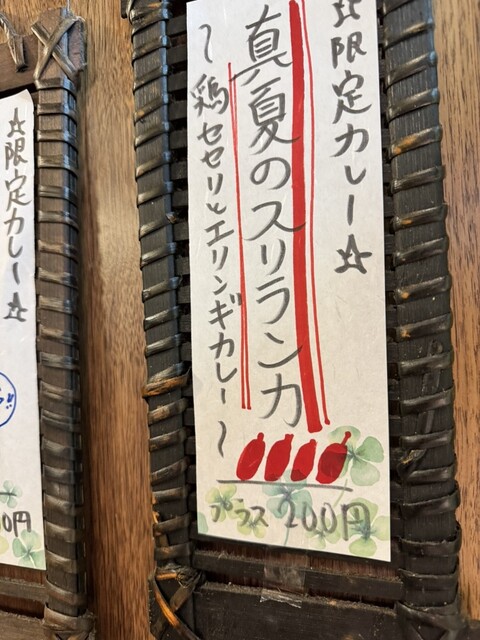 ☆限定カレー☆
真夏のスリランカ
～鶏セセリとエリンギカレー～
プラス 200円
☆限定カレー☆
0円